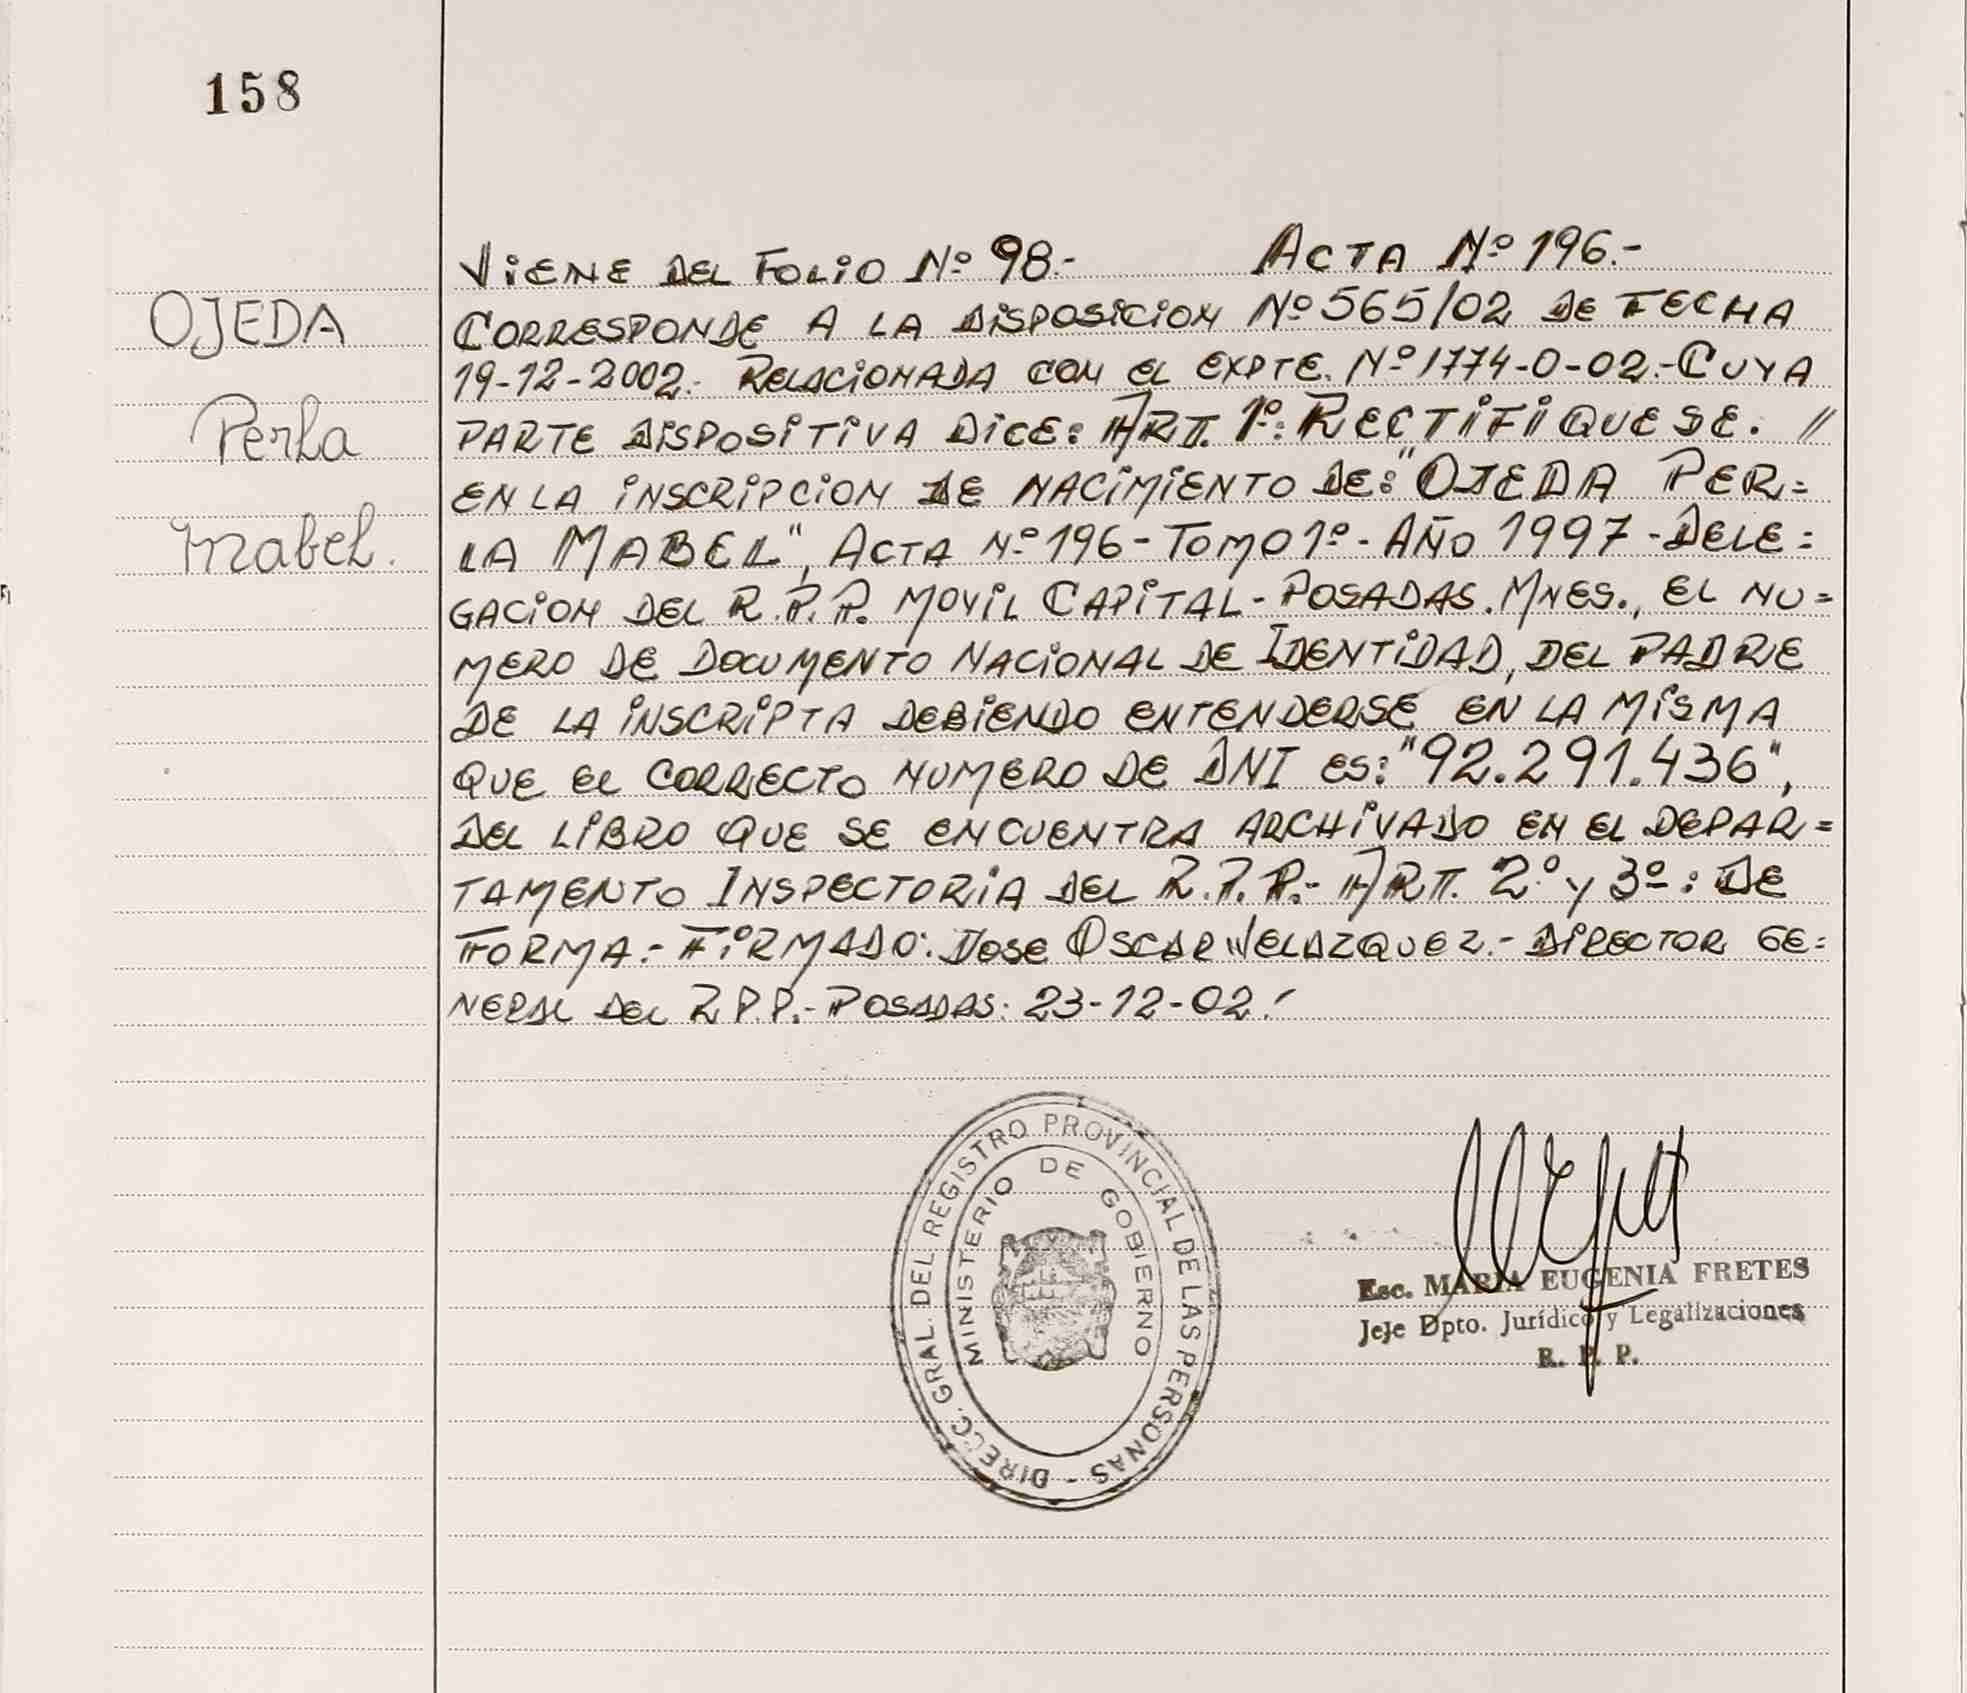 158
OJEDA
Perla
Mabel.
VIENE DEL FOLIO Nº 98.- ACTA Nº 196.-
CORRESPONDE A LA DISPOSICION Nº 565/02 DE FECHA
19-12-2002.- RELACIONADA CON EL EXPTE. Nº 1774-O-02.- CUYA
PARTE DISPOSITIVA DICE: ART. 1º: RECTIFIQUESE. //
EN LA INSCRIPCION DE NACIMIENTO DE: "OJEDA PER=
LA MABEL", ACTA Nº 196 - TOMO 1º - AÑO 1997 - DELE=
GACION DEL R.P.P. MOVIL CAPITAL - POSADAS. MNES., EL NU=
MERO DE DOCUMENTO NACIONAL DE IDENTIDAD, DEL PADRE
DE LA INSCRIPTA DEBIENDO ENTENDERSE EN LA MISMA
QUE EL CORRECTO NUMERO DE DNI ES: "92.291.436",
DEL LIBRO QUE SE ENCUENTRA ARCHIVADO EN EL DEPAR=
TAMENTO INSPECTORIA DEL R.P.P.- ART. 2º Y 3º: DE
FORMA.- FIRMADO: JOSE OSCAR VELAZQUEZ.- DIRECTOR GE=
NERAL DEL R.P.P.- POSADAS: 23-12-02.-
DIRECC. GRAL. DEL REGISTRO PROVINCIAL DE LAS PERSONAS -
MINISTERIO DE GOBIERNO
Esc. MARIA EUGENIA FRETES
Jefe Dpto. Jurídico y Legalizaciones
R. P. P.